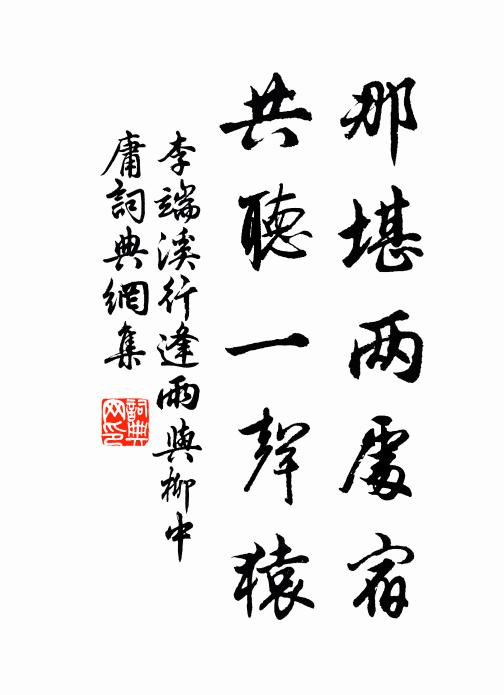 那堪两處宿
共聽一聲猿
李端溪行逢雨與柳中
庸詞典網集
詞典
网印